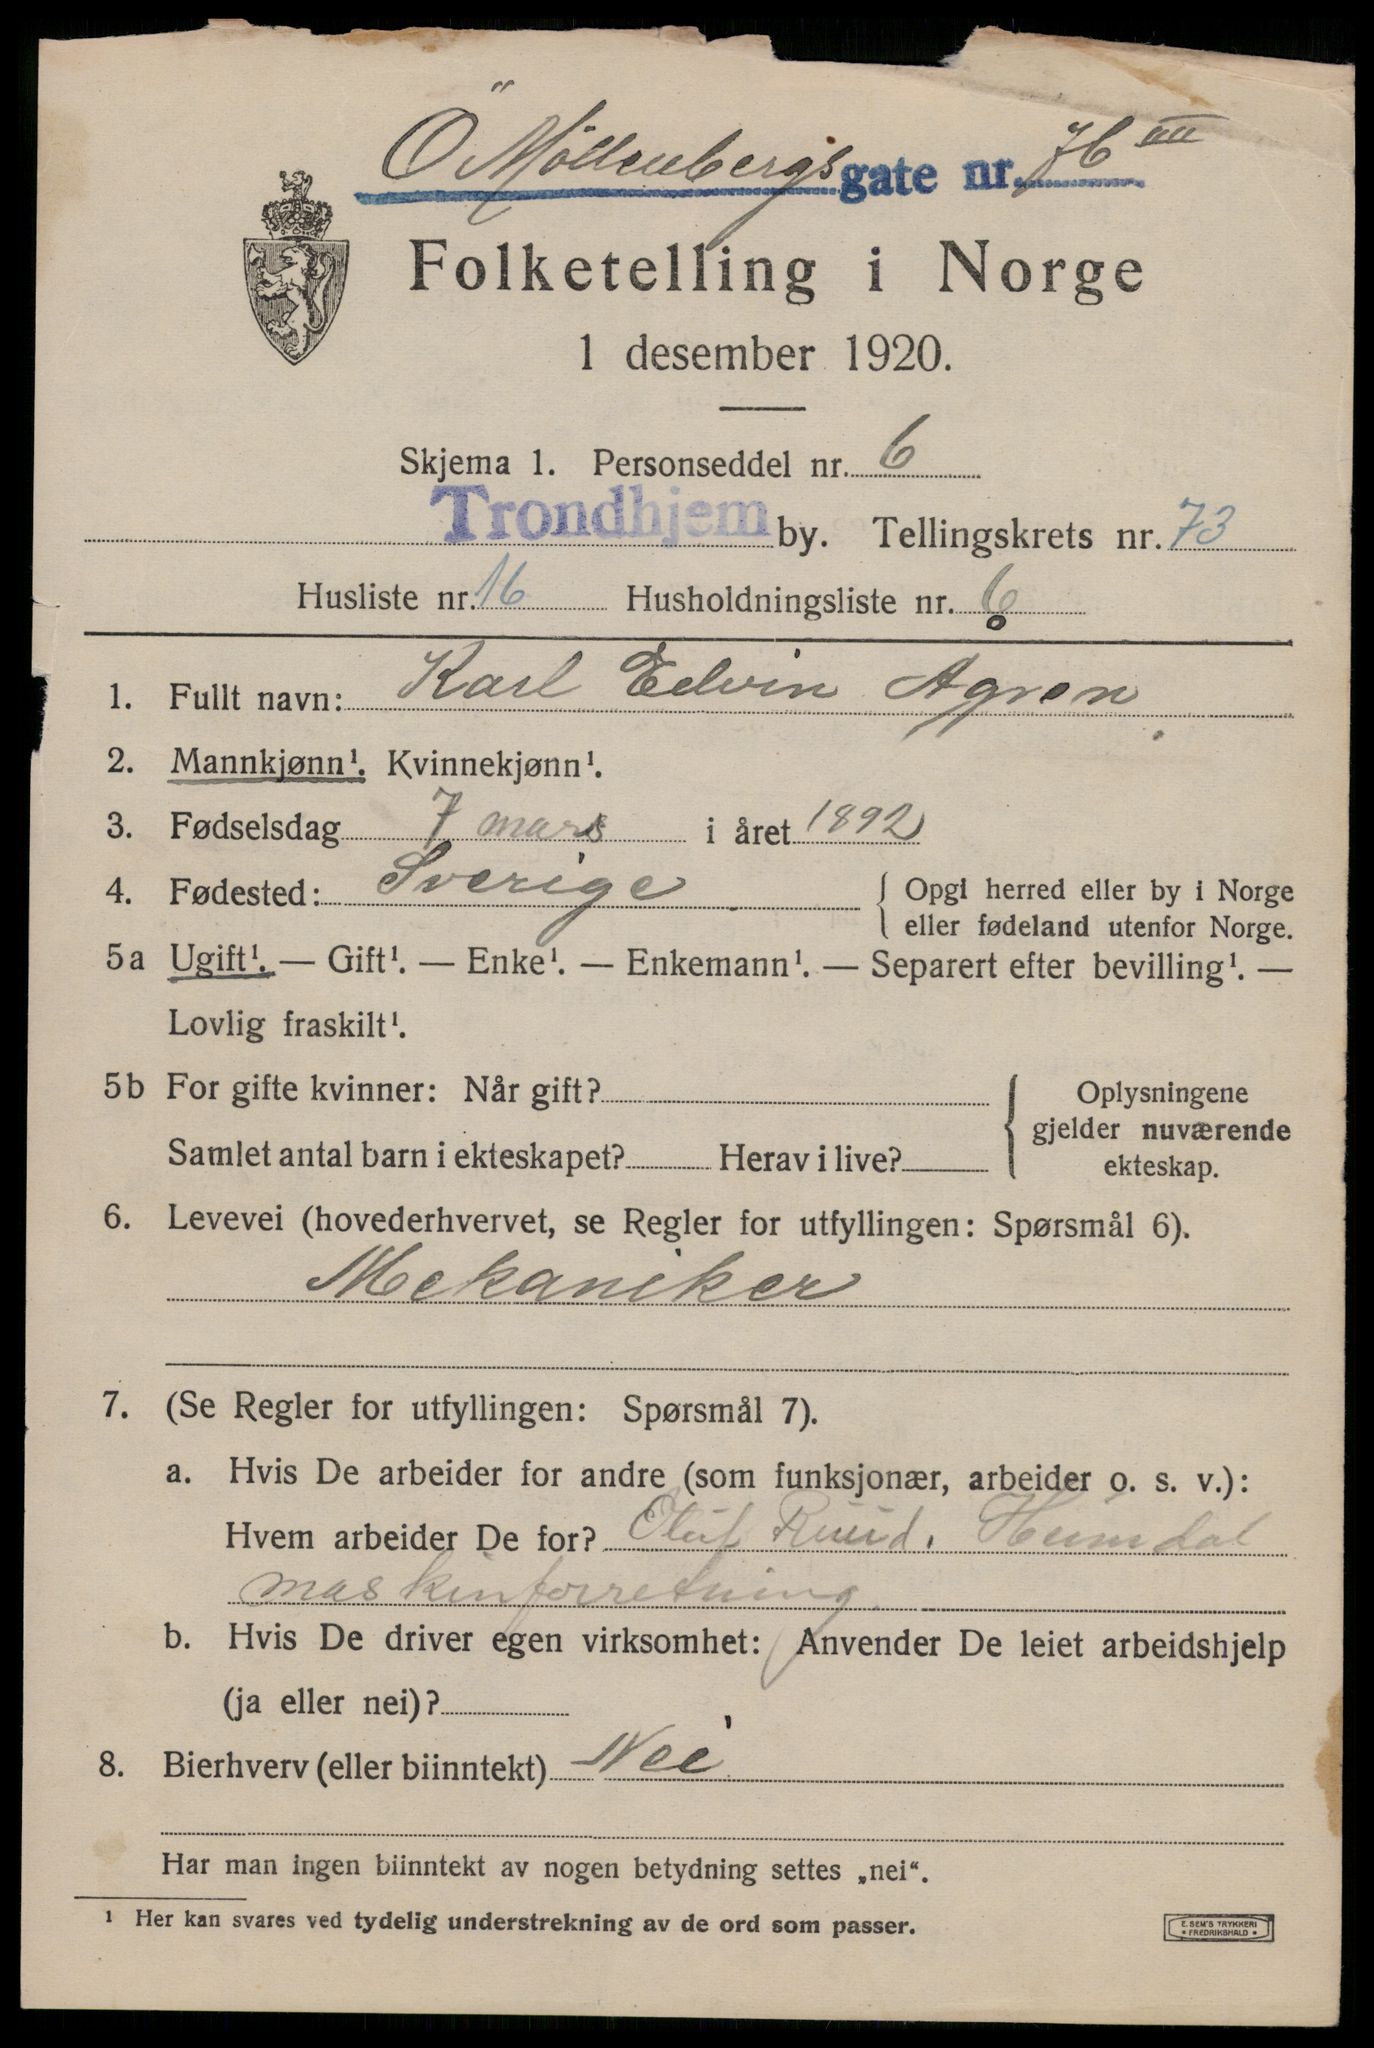 Ö Möllenbergsgate nr. 76 III
Folketelling i Norge
1 desember 1920.
Skjema 1. Personseddel nr. 6
Trondhjem by. Tellingskrets nr. 73
Husliste nr. 16 Husholdningsliste nr. 6
1. Fullt navn: Karl Edvin Agren
2. Mannkjønn¹. Kvinnekjønn¹.
3. Fødselsdag 7 mars i året 1892
4. Fødested: Sverige { Opgi herred eller by i Norge
eller fødeland utenfor Norge.
5a Ugift¹. — Gift¹. — Enke¹. — Enkemann¹. — Separert efter bevilling¹. —
Lovlig fraskilt¹.
5b For gifte kvinner: Når gift? { Oplysningene
gjelder nuværende
Samlet antal barn i ekteskapet? Herav i live? ekteskap.
6. Levevei (hovederhvervet, se Regler for utfyllingen: Spørsmål 6).
Mekaniker
7. (Se Regler for utfyllingen: Spørsmål 7).
a. Hvis De arbeider for andre (som funksjonær, arbeider o. s. v.):
Hvem arbeider De for? Oluf Ruud, Heimdal
maskinforretning
b. Hvis De driver egen virksomhet: Anvender De leiet arbeidshjelp
(ja eller nei)?
8. Bierhverv (eller biinntekt) Nei
Har man ingen biinntekt av nogen betydning settes „nei“.
¹ Her kan svares ved tydelig understrekning av de ord som passer.
E. SEM'S TRYKKERI
* FREDRIKSHALD *